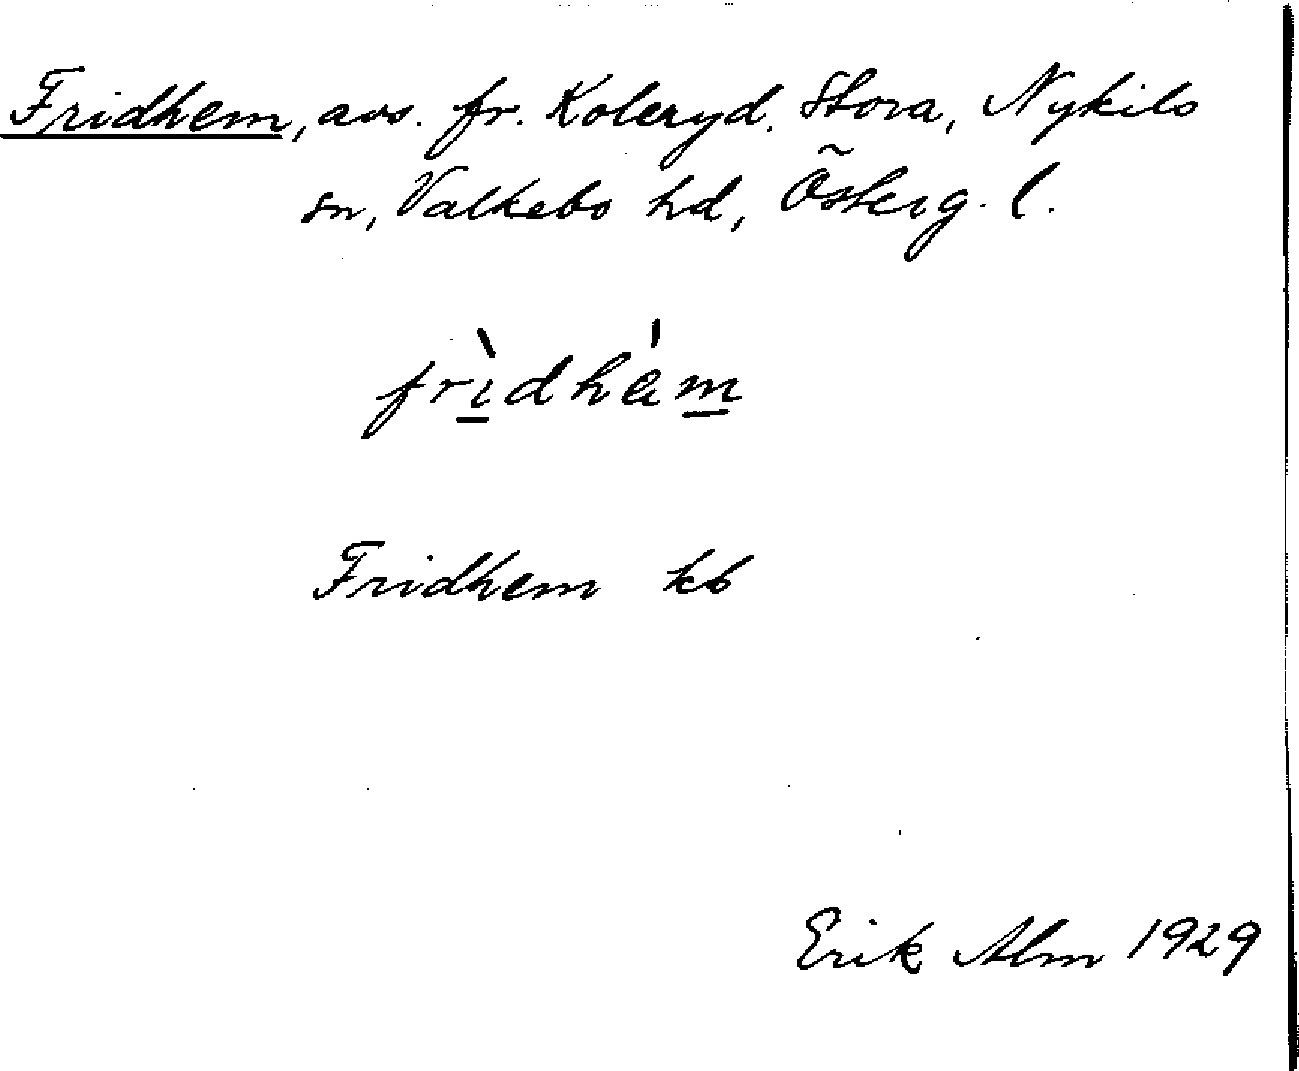 Fridhem, avs. fr. Koleryd, Stora, Nykils
sn, Valkebo hd, Österg. l.
frìdhem
Fridhem kb
Erik Alm 1929